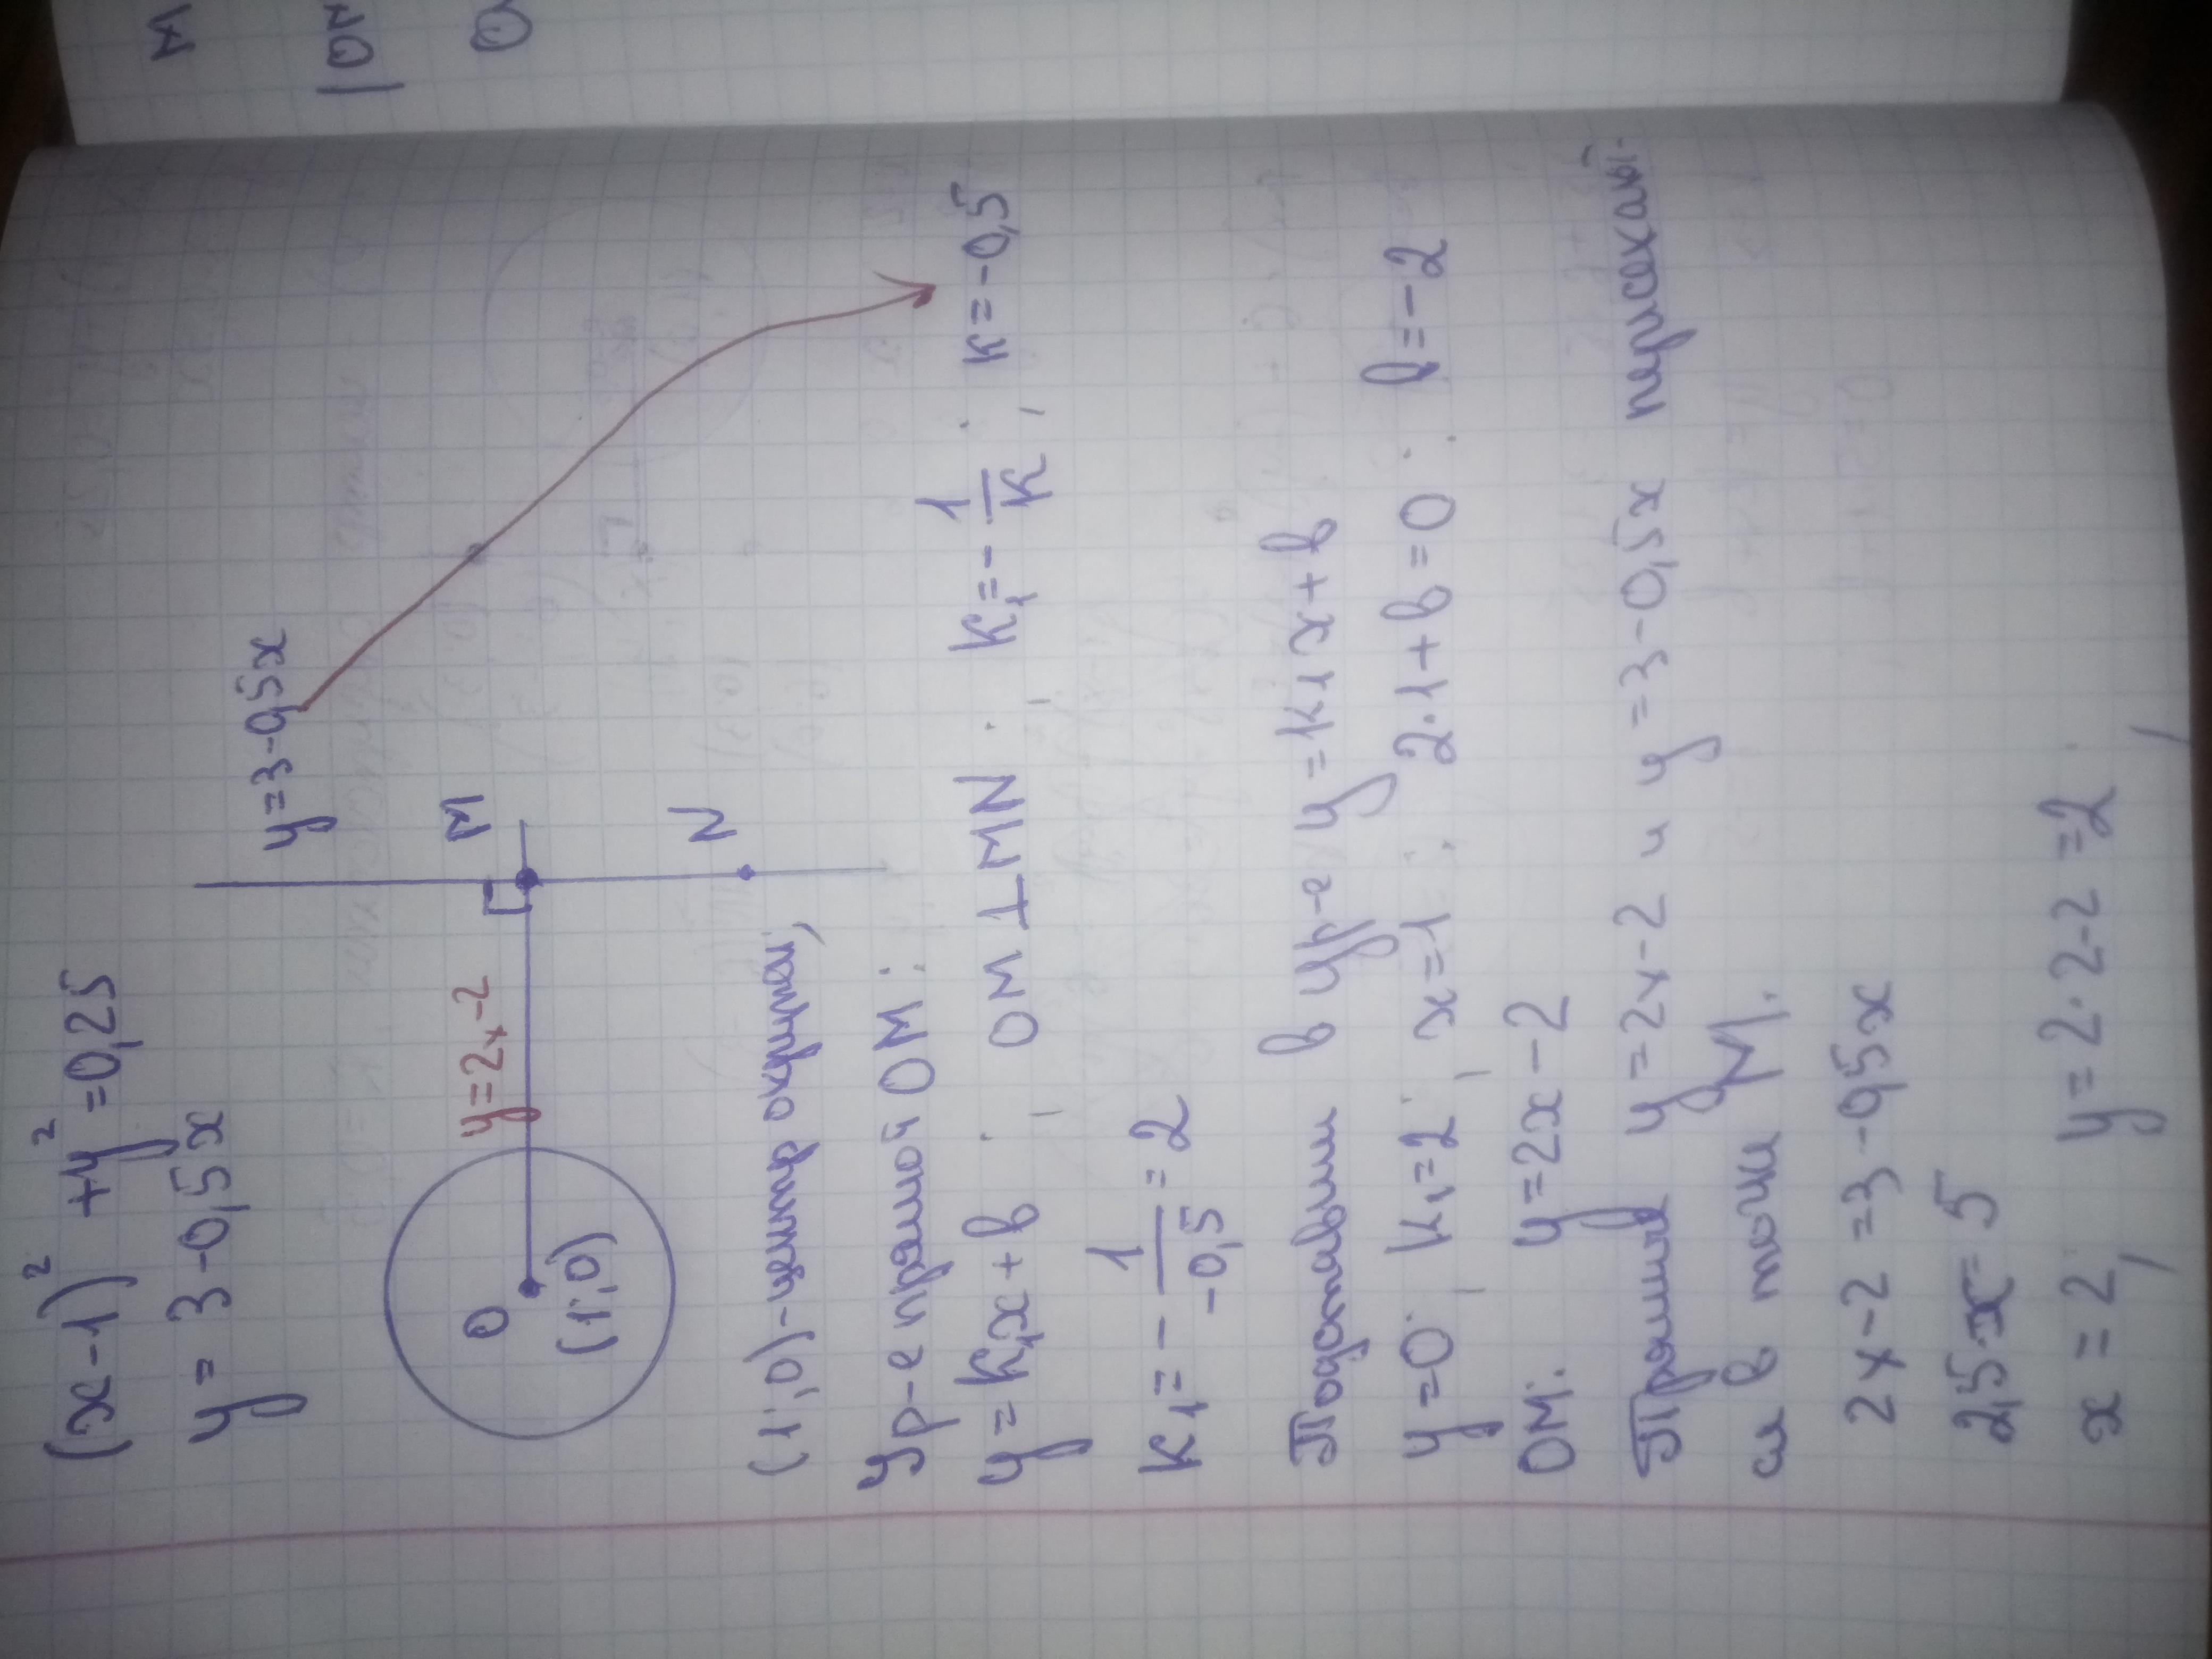 (x-1)² + y² = 0,25
y = 3 - 0,5x
y = 3 - 0,5x
y = 2x - 2
M
O
(1;0)
N
(1;0) - центр окружн.,
Ур-е прямой OM:
y = k₁x + b; OM ⊥ MN; k₁ = -1/k; k = -0,5
k₁ = -1/-0,5 = 2
Подставим в ур-е y = k₁x + b
y = 0; k₁ = 2; x = 1; 2·1 + b = 0; b = -2
OM: y = 2x - 2
Прямые y = 2x - 2 и y = 3 - 0,5x пересекают-
ся в точки M.
2x - 2 = 3 - 0,5x
2,5·x = 5
x = 2; y = 2·2 - 2 = 2;
M
|ON
O